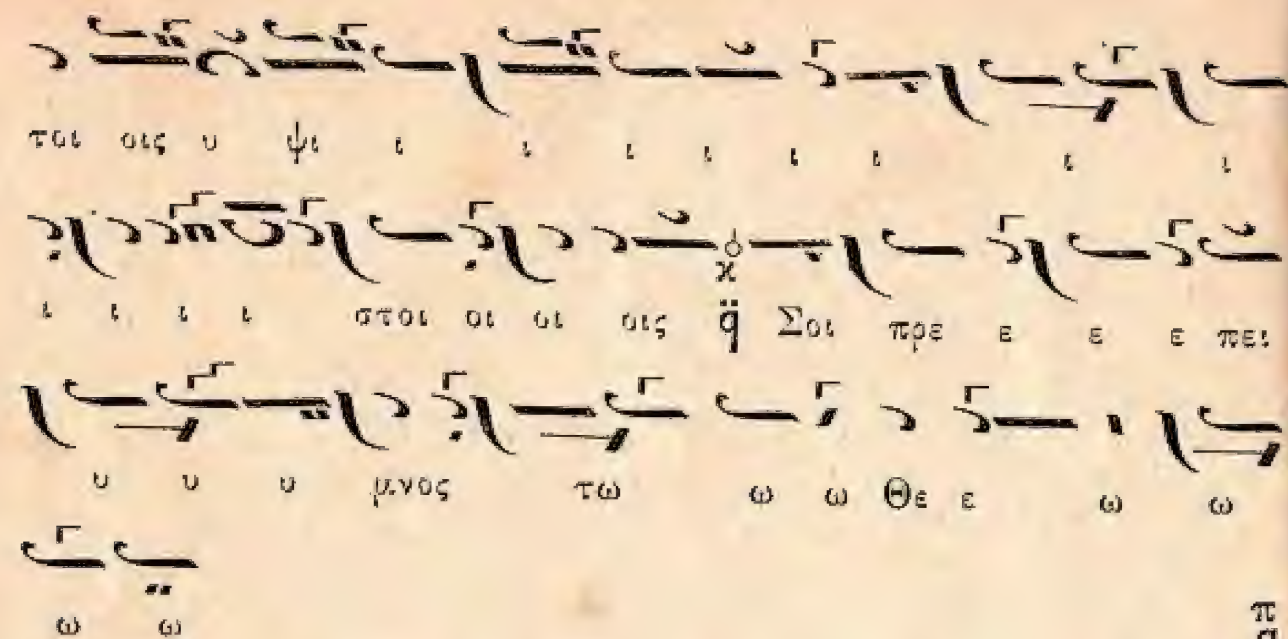 τοι οις υ ψι ι ι ι ι ι ι ι ι
ι ι ι ι στοι οι οι οις q̈ Σοι πρε ε ε ε πει
υ υ υ μνος τω ω ω Θε ε ω ω
ω ω
π
q